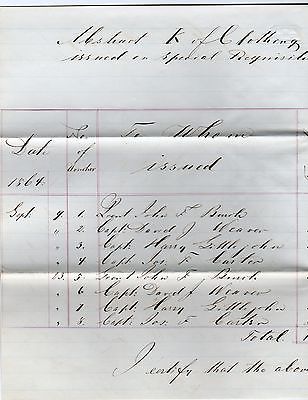 Abstract K of Clothing
issued on Special Requisiti
Date 1864
No. of Voucher
To Whom issued
Sept 9. 1. Lieut John F Burch
" 2. Capt. David J Weaver
" 3. Capt. Harry Littlejohn
" 4. Capt. Jos. F Carter
13. 5. Lieut John F Burch
" 6. Capt. David J. Weaver
" 7. Capt. Harry Littlejohn
" 8. Capt. Jos. F. Carter
Total.
I certify that the above